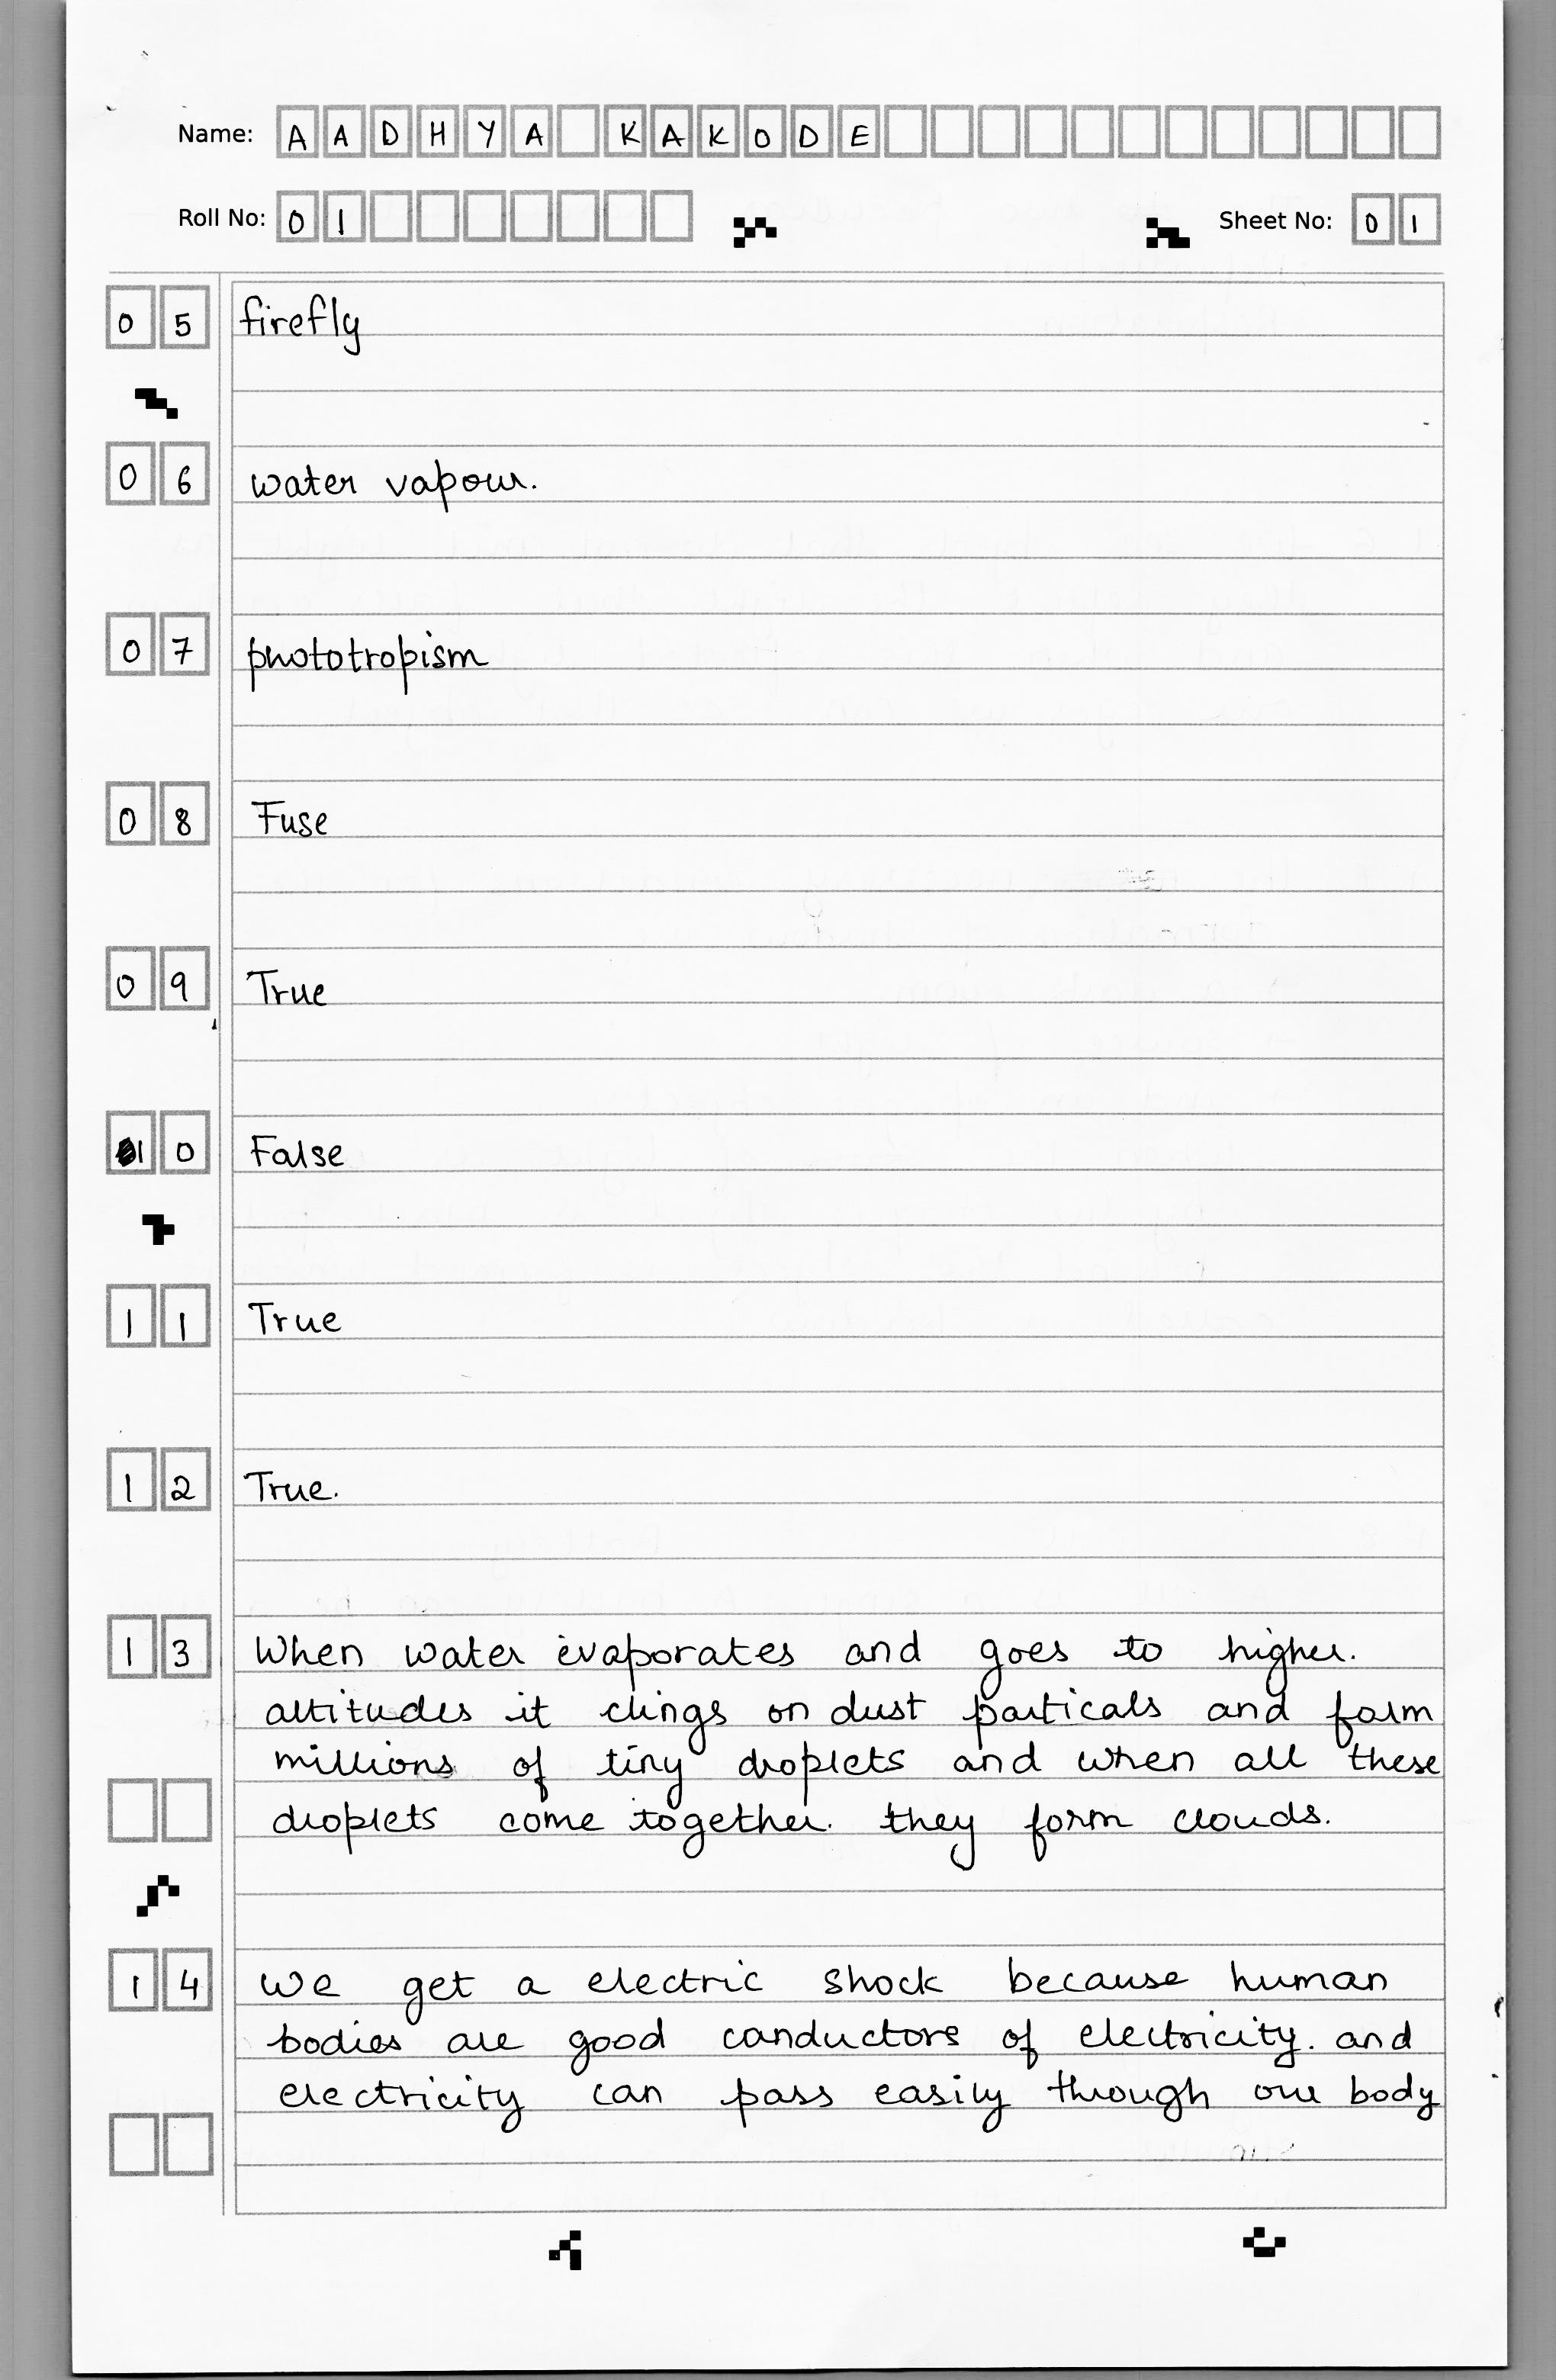 Name: AADHYA KAKODE
Roll No: 01 Sheet No: 01
05 firefly
06 water vapour.
07 phototropism
08 Fuse
09 True
10 False
11 True
12 True.
13 When water evaporates and goes to higher.
altitudes it clings on dust particals and form
millions of tiny droplets and when all these
droplets come together. they form clouds.
14 We get a electric shock because human
bodies are good conductors of electricity. and
electricity can pass easily through our body